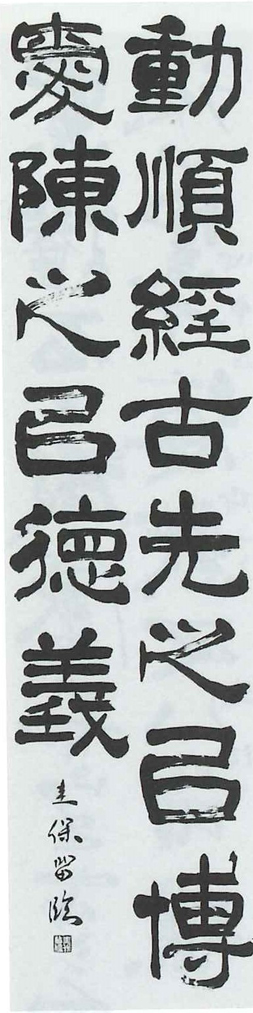 動順經古先之㠯博
愛陳之㠯德義
圭保留臨